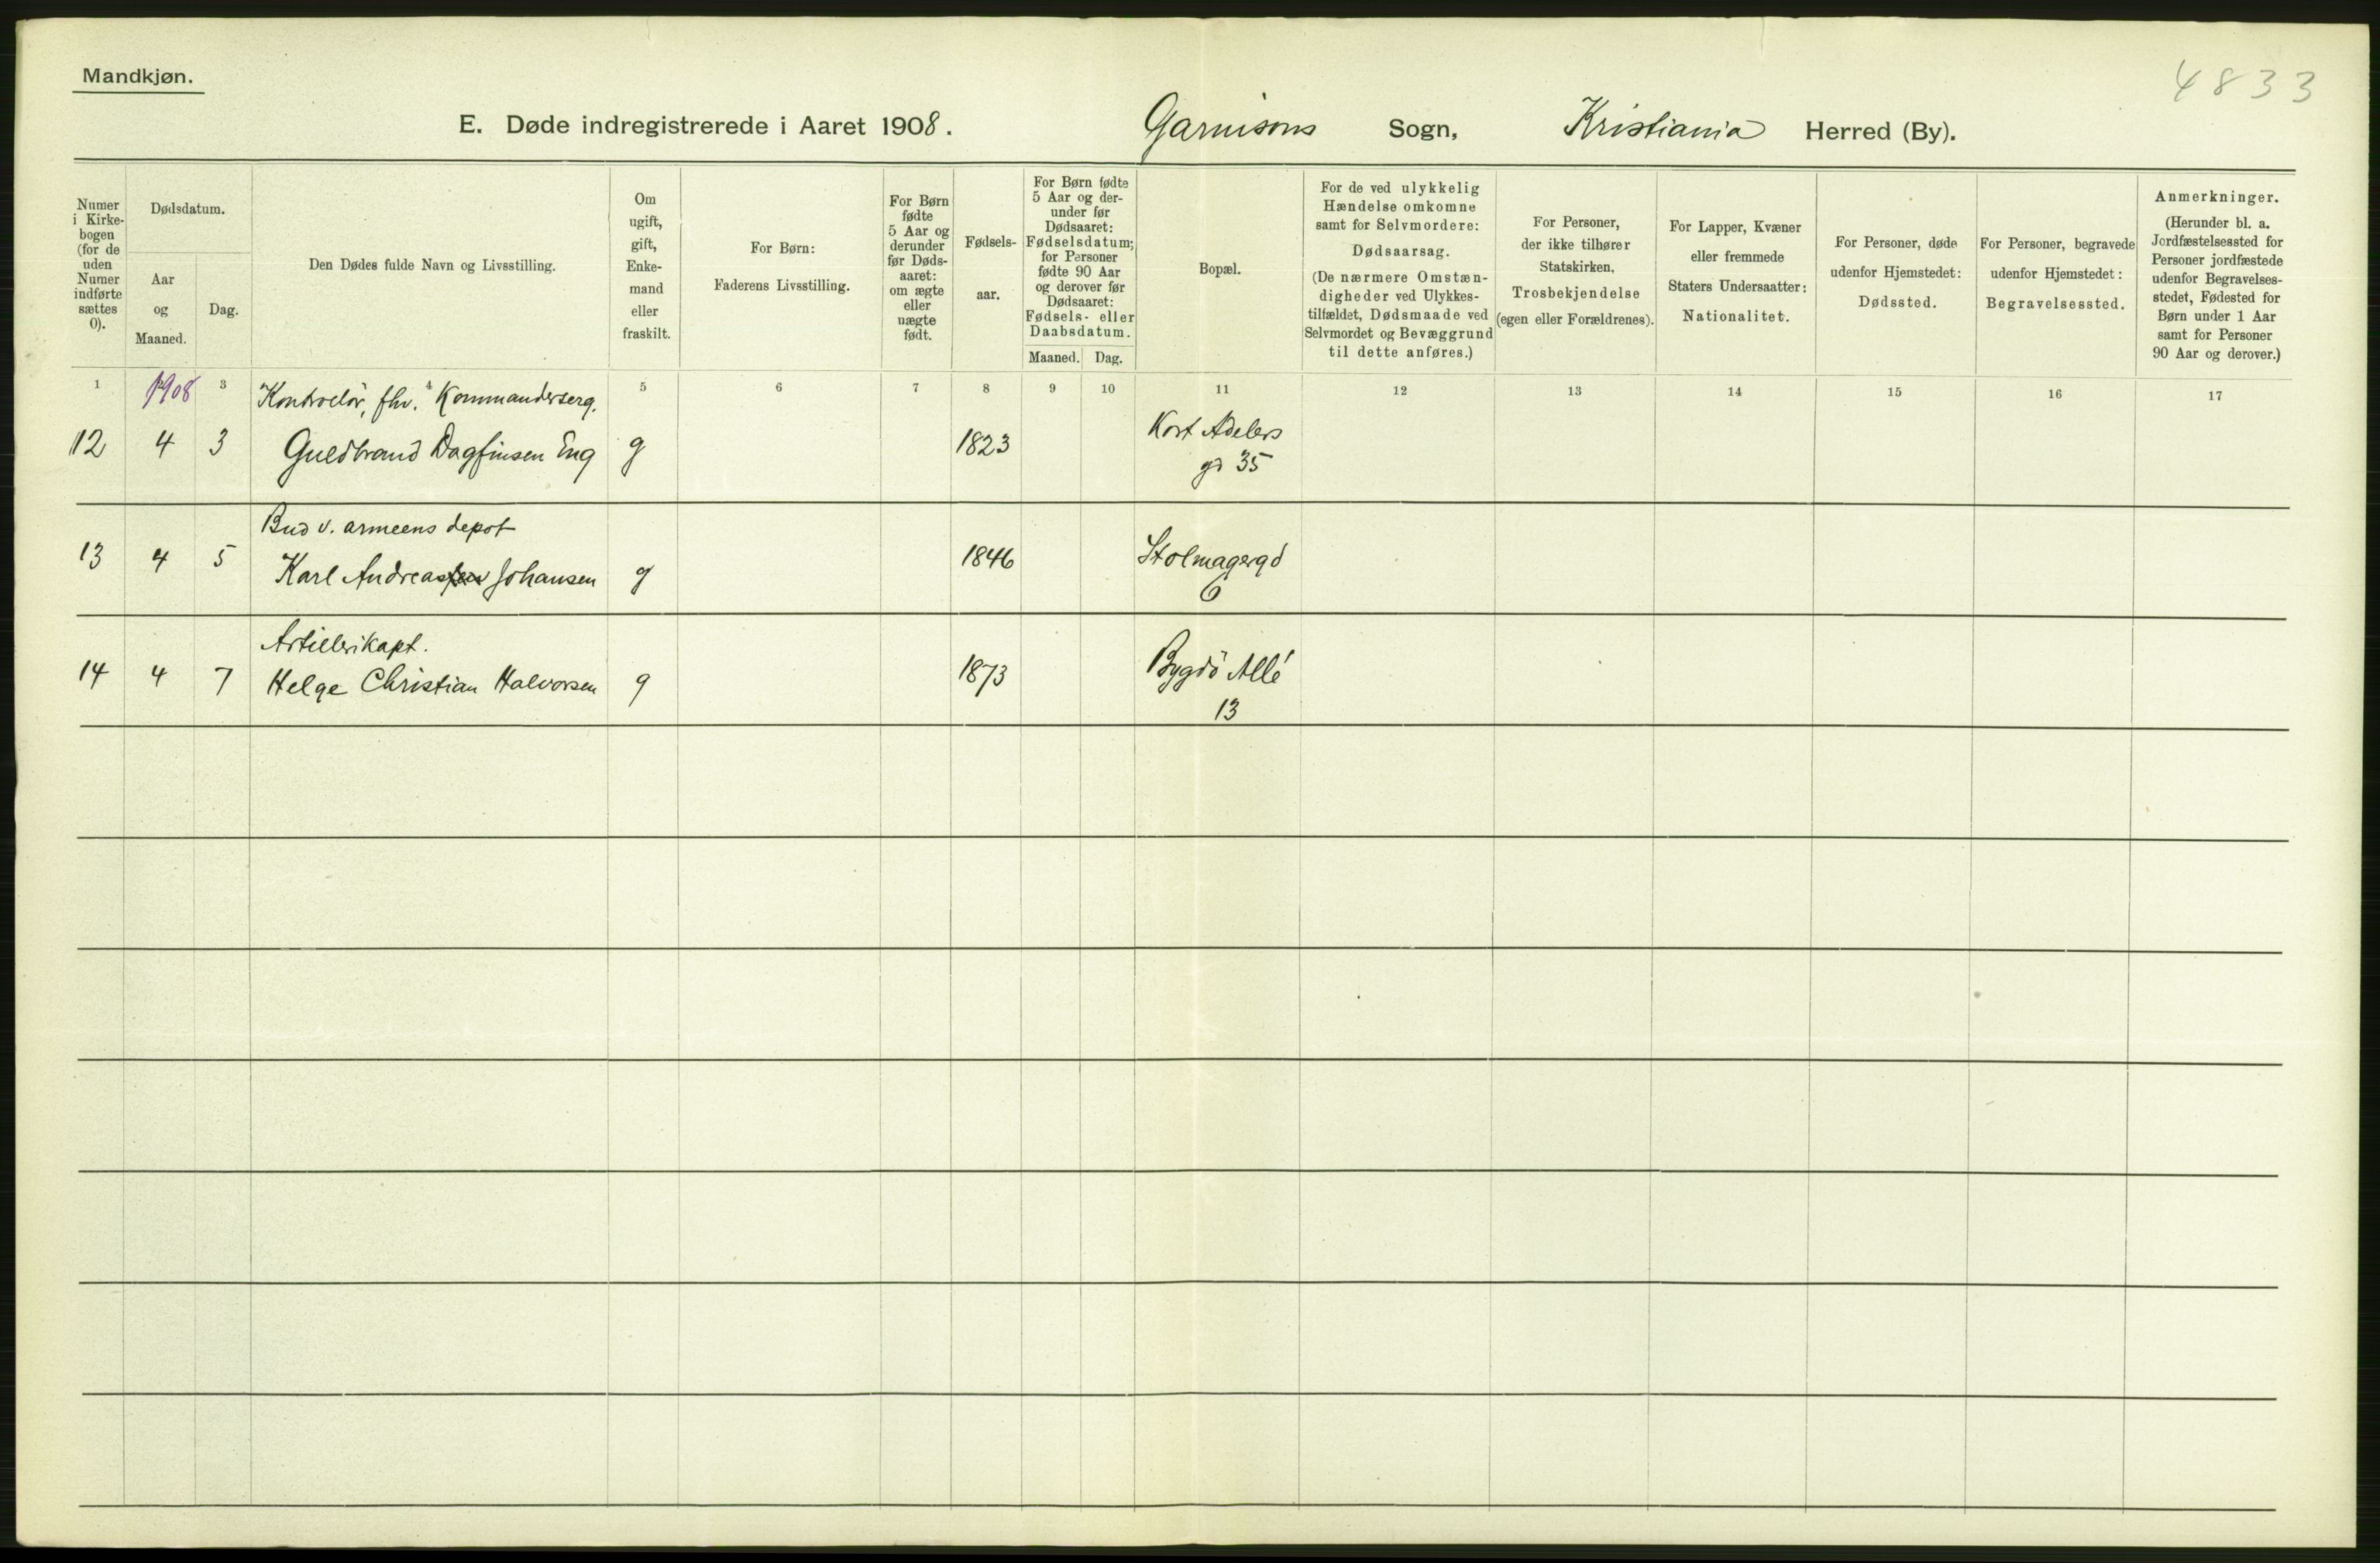 Mandkjøn.
4833
E. Døde indregistrerede i Aaret 1908. Garnisons Sogn, Kristiania Herred (By).
Numer i Kirkebogen (for de uden Numer indførte sættes 0).
Dødsdatum.
Aar og Maaned.
Dag.
Den Dødes fulde Navn og Livsstilling.
Om ugift, gift, Enkemand eller fraskilt.
For Børn: Faderens Livsstilling.
For Børn fødte 5 Aar og derunder før Dødsaaret: om ægte eller uægte født.
Fødselsaar.
For Børn fødte 5 Aar og derunder før Dødsaaret: Fødselsdatum; for Personer fødte 90 Aar og derover før Dødsaaret: Fødsels- eller Daabsdatum.
Maaned. Dag.
Bopæl.
For de ved ulykkelig Hændelse omkomne samt for Selvmordere: Dødsaarsag. (De nærmere Omstændigheder ved Ulykkestilfældet, Dødsmaade ved Selvmordet og Bevæggrund til dette anføres.)
For Personer, der ikke tilhører Statskirken, Trosbekjendelse (egen eller Forældrenes).
For Lapper, Kvæner eller fremmede Staters Undersaatter: Nationalitet.
For Personer, døde udenfor Hjemstedet: Dødssted.
For Personer, begravede udenfor Hjemstedet: Begravelsessted.
Anmerkninger. (Herunder bl. a. Jordfæstelsessted for Personer jordfæstede udenfor Begravelsesstedet, Fødested for Børn under 1 Aar samt for Personer 90 Aar og derover.)
1 1908 3 4 5 6 7 8 9 10 11 12 13 14 15 16 17
Kontrollør, fhv. Kommanderserg.
12 4 3 Guldbrand Dagfinsen Eng g 1823 Kort Adelers
gd 35
Bud v. armeens depot
13 4 5 Karl Andreas Johansen g 1846 Stolmagergd
6
Artillerikapt.
14 4 7 Helge Christian Halvorsen g 1873 Bygdö Allé
13